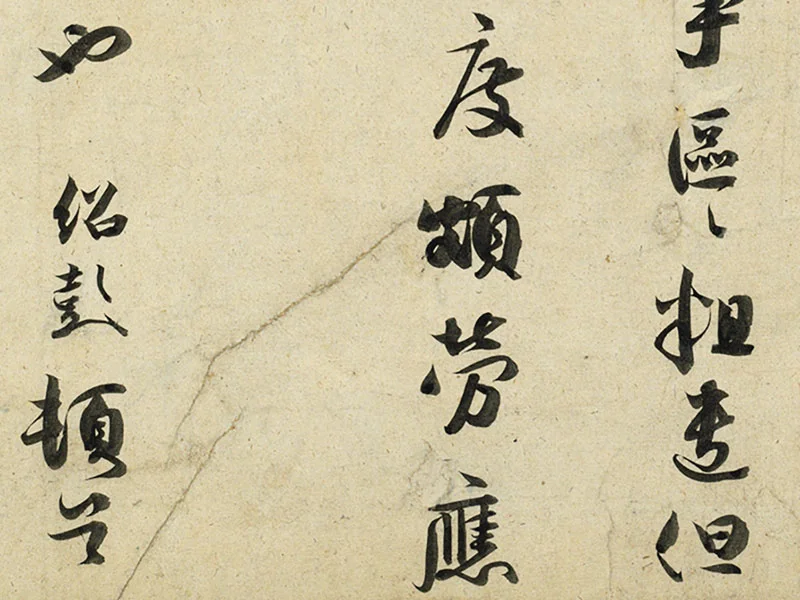 事區〻粗遣但
度頗勞應
也
紹彭頓首